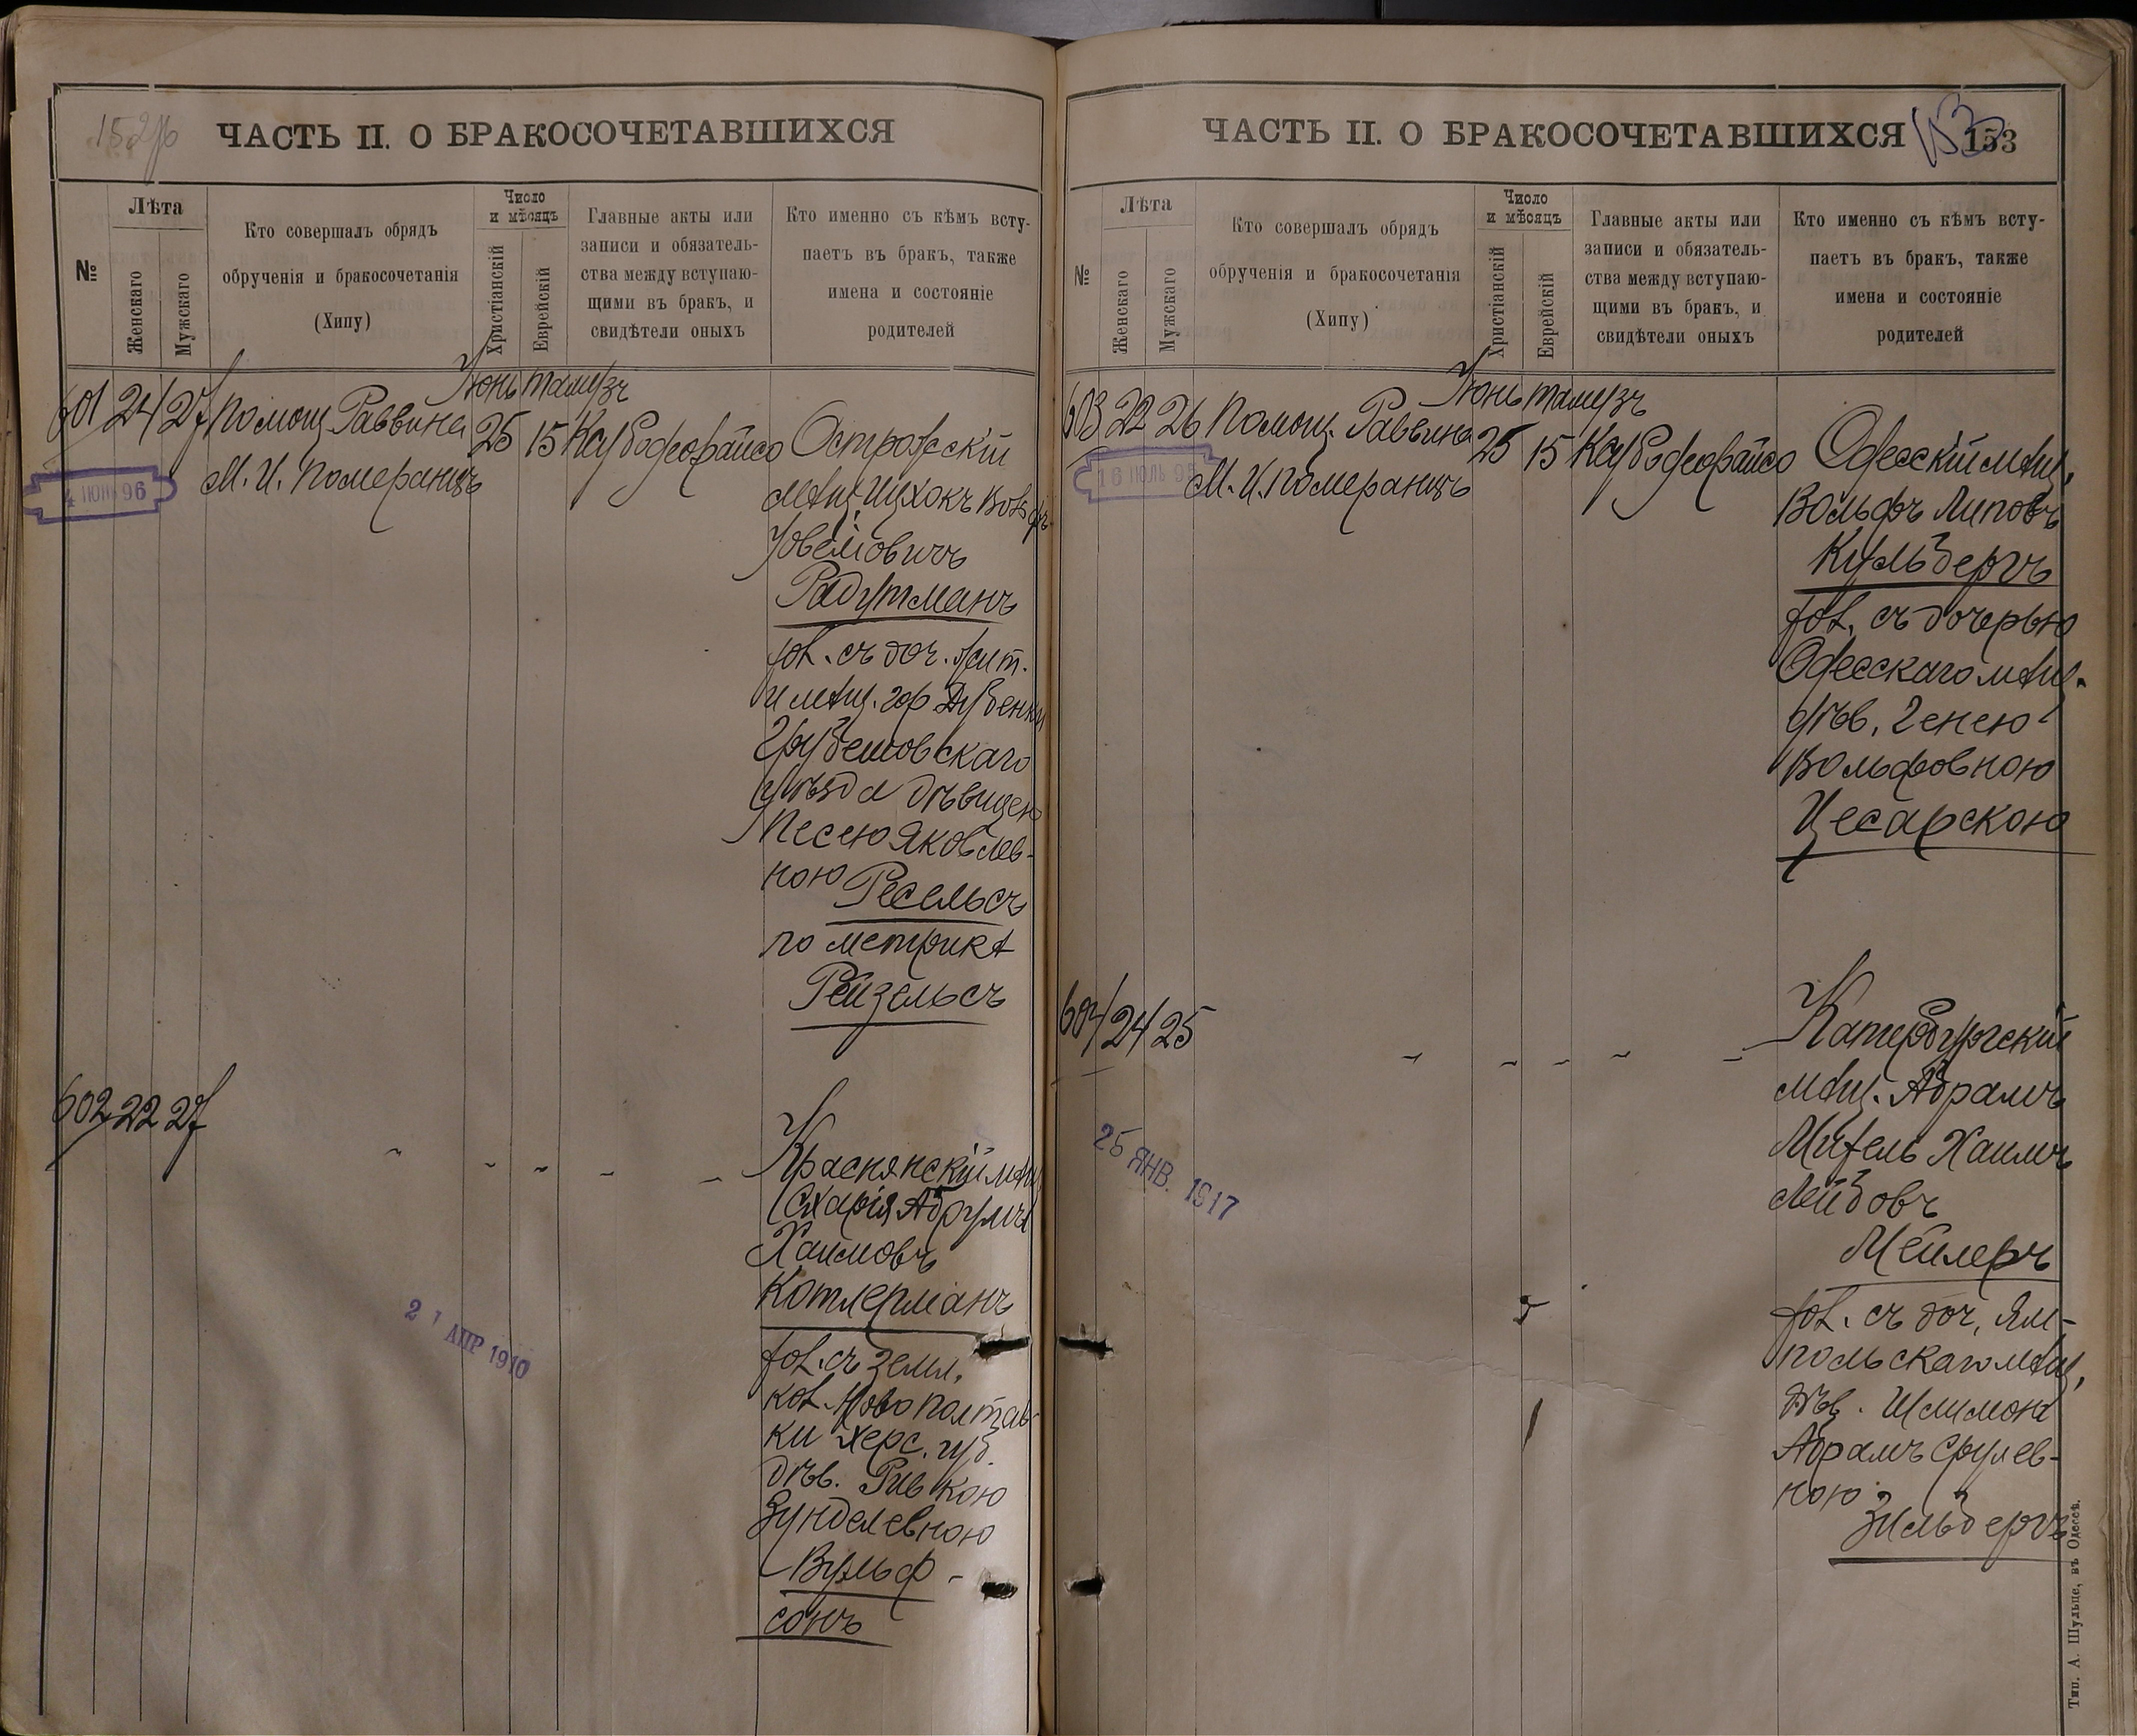 152об
ЧАСТЬ II. О БРАКОСОЧЕТАВШИХСЯ
№
Лѣта
Женскаго
Мужскаго
Кто совершалъ обрядъ
обрученія и бракосочетанія
(Хипу)
Число
и мѣсяцъ
Христіанскій
Еврейскій
Главные акты или
записи и обязатель-
ства между вступаю-
щими въ бракъ, и
свидѣтели оныхъ
Кто именно съ кѣмъ всту-
паетъ въ бракъ, также
имена и состояніе
родителей
Іюнь тамузъ
601 24 27 Помощ. Раввина 25 15 Острожскій
М. И. Померанцъ
4 ИЮН 96
мѣщ. Ицхокъ Вольфъ
Іовеліовичъ
Радутманъ
хол. съ доч.
и мѣщ. гор. Дубенки
Грубешовскаго
уѣзда дѣвицею
Песею Яковлев-
ною Ресельсъ
по метрикѣ
Рейзельсъ
602 22 27
Краснянскій мѣщ.
Схарія Абрумъ
Хаимовъ
Котлерманъ
хол. съ земл.
кол. Новополтав-
ки Херс. губ.
дѣв. Ривкою
Зунделевною
Вульф-
сонъ
АПР 1910
ЧАСТЬ II. О БРАКОСОЧЕТАВШИХСЯ
153
153
№
Лѣта
Женскаго
Мужскаго
Кто совершалъ обрядъ
обрученія и бракосочетанія
(Хипу)
Число
и мѣсяцъ
Христіанскій
Еврейскій
Главные акты или
записи и обязатель-
ства между вступаю-
щими въ бракъ, и
свидѣтели оныхъ
Кто именно съ кѣмъ всту-
паетъ въ бракъ, также
имена и состояніе
родителей
Іюнь тамузъ
603 22 26 Помощ. Раввина 25 15 Одесскій мѣщ.
М. И. Померанцъ
16 ИЮЛЬ
Вольфъ Липовъ
Кульбергъ
хол. съ дочерью
Одесскаго мѣщ.
дѣв. Генею
Вольфовною
Цесарскою
604 24 25
Катербургскій
мѣщ. Абрамъ
Митель Хаимъ
Лейбовъ
Мейлеръ
хол. съ доч. Ям-
польскаго мѣщ.
дѣв.
Абрамъ Срулев-
ною
Зильбергъ
25 ЯНВ. 1917
Тип. А. Шульце, въ Одессѣ.